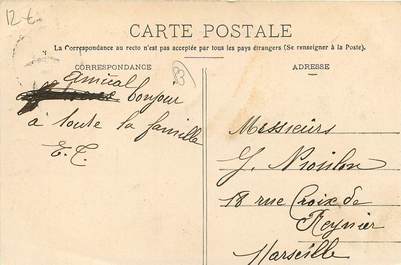 12 €
CARTE POSTALE
La Correspondance au recto n'est pas acceptée par tous les pays étrangers (Se renseigner à la Poste).
CORRESPONDANCE
ADRESSE
amical
bonjour
à toute la famille
E. C.
Messieurs
18 rue Croix de
Reynier
Marseille